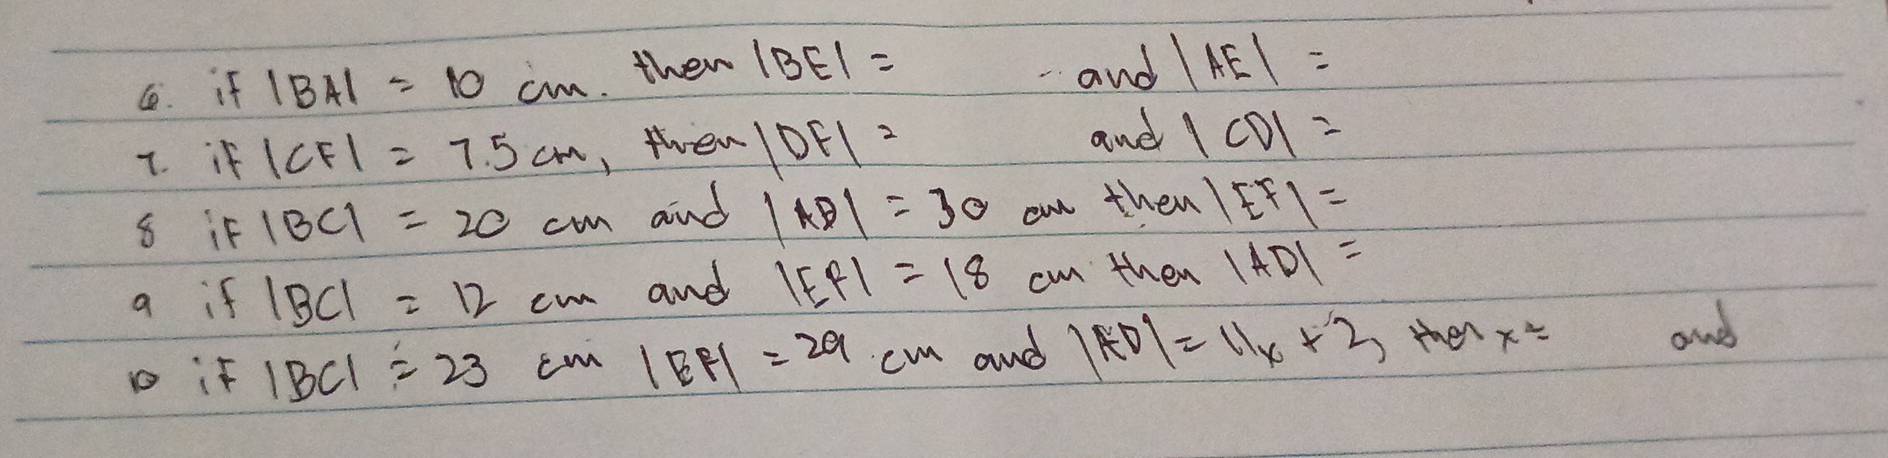 6. if |BA| = 10 cm. then |BE| = and |AE| =
7. if |CF| = 7.5 cm, then |DF| = and |CD| =
8 if |BC| = 20 cm and |AD| = 30 cm then |EF| =
9 if |BC| = 12 cm and |EF| = 18 cm then |AD| =
10 if |BC| = 23 cm |EF| = 29 cm and |AD| = 11x + 2, then x = and